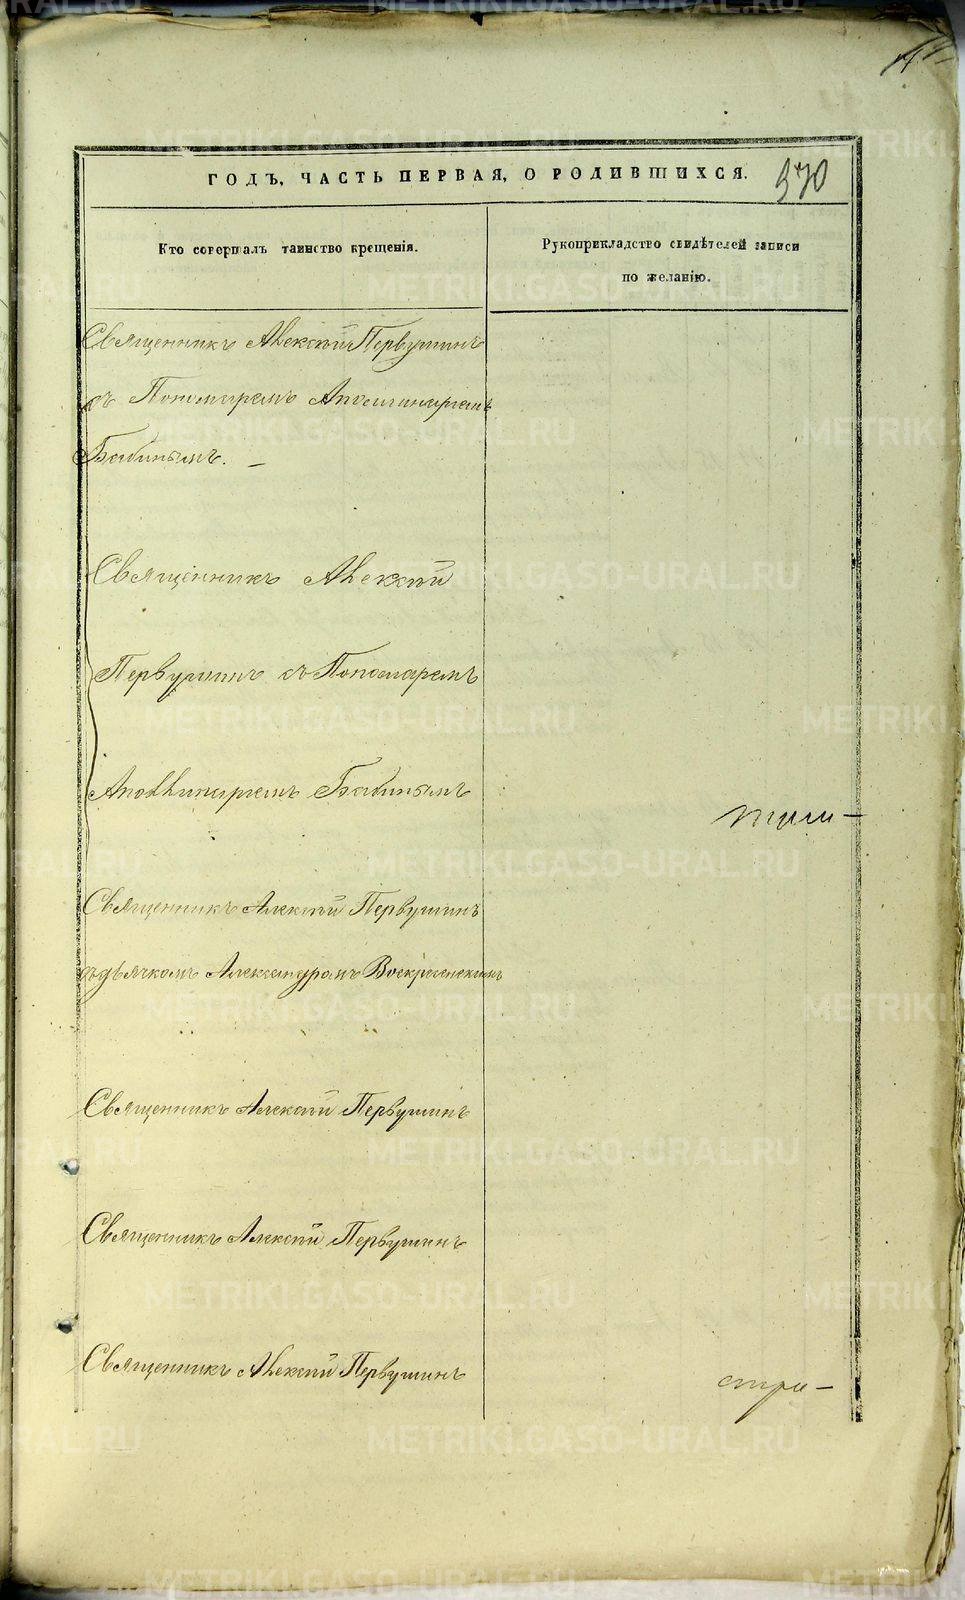 370
ГОДЪ, ЧАСТЬ ПЕРВАЯ, О РОДИВШИХСЯ.
Кто совершалъ таинство крещенія.
Рукоприкладство свидѣтелей записи
по желанію.
Священникъ Алексѣй Первушинъ
съ Пономаремъ Аполлинаріемъ
Бабинымъ. –
Священникъ Алексѣй
Первушинъ съ Пономаремъ
Аполлинаріемъ Бабинымъ
Священникъ Алексѣй Первушинъ
съ дьячкомъ Александромъ Воскресенскимъ
Священникъ Алексѣй Первушинъ
Священникъ Алексѣй Первушинъ
Священникъ Алексѣй Первушинъ
METRIKI.GASO-URAL.RU